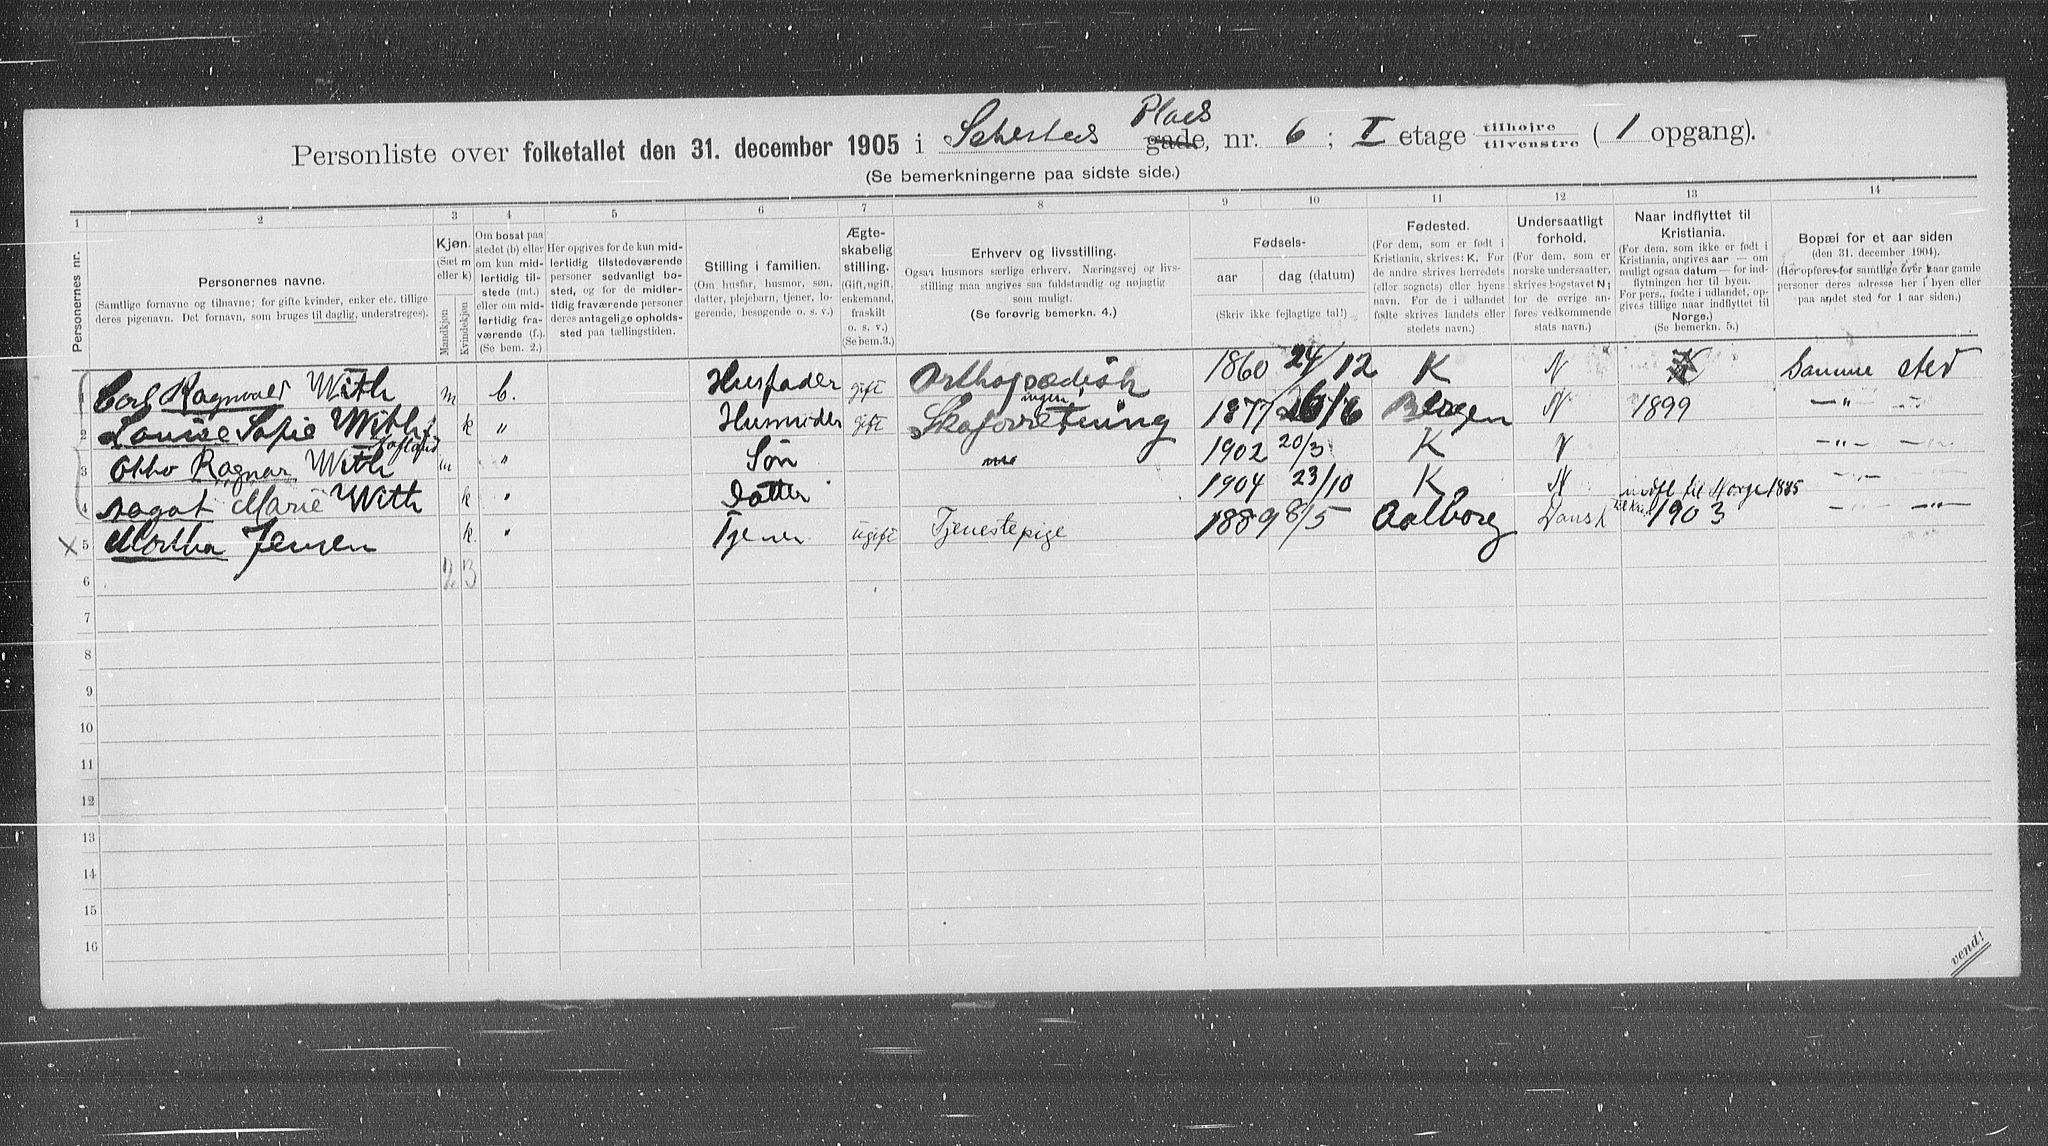 Personliste over folketallet den 31. december 1905 i Sehesteds Plads gade, nr. 6; I etage tilhøjre tilvenstre (1 opgang).
(Se bemerkningerne paa sidste side.)
1 2 3 4 5 6 7 8 9 10 11 12 13 14
Personernes nr.
Personernes navne.
(Samtlige fornavne og tilnavne; for gifte kvinder, enker etc. tillige deres pigenavn. Det fornavn, som bruges til daglig, understreges).
Kjøn.
(Sæt m eller k)
Mandkjøn
Kvindekjøn
Om bosat paa stedet (b) eller om kun midlertidig tilstede (mt.) eller om midlertidig fraværende (f.). (Se bem. 2.)
Her opgives for de kun midlertidig tilstedeværende personer sedvanligt bosted, og for de midlertidig fraværende personer deres antagelige opholdssted paa tællingstiden.
Stilling i familien.
(Om husfar, husmor, søn, datter, plejebarn, tjener, logerende, besøgende o. s. v.)
Ægteskabelig stilling.
(Gift, ugift, enkemand, fraskilt o. s. v.) (Se bem. 3.)
Erhverv og livsstilling.
Ogsaa husmors særlige erhverv. Næringsvej og livsstilling maa angives saa fuldstændig og nøjagtig som muligt.
(Se forøvrig bemerkn. 4.)
Fødsels-
aar
dag (datum)
(Skriv ikke fejlagtige tal!)
Fødested.
(For dem, som er født i Kristiania, skrives: K. For de andre skrives herredets (eller sognets) eller byens navn. For de i udlandet fødte skrives landets eller stedets navn.)
Undersaatligt forhold.
(For dem, som er norske undersaatter, skrives bogstavet N; for de øvrige anføres vedkommende stats navn.)
Naar indflyttet til Kristiania.
(For dem, som ikke er født i Kristiania, angives aar — om muligt ogsaa datum — for indflytningen her til byen. For pers., fødte i udlandet, opgives tillige naar indflyttet til Norge.)
(Se bemerkn. 5.)
Bopæl for et aar siden
(den 31. december 1904).
(Her opføres for samtlige over 1 aar gamle personer deres adresse her i byen eller paa andet sted for 1 aar siden.)
1 Carl Ragnvald With m b. Husfader gift Orthopædisk 1860 24/12 K N N Samme sted
2 Louise Sofie With k " Husmoder gift Skoforretning 1877 26/6 Bergen N 1899 —"—
3 Otto Ragnar With m " Søn 1902 20/3 K N —"—
4 Marie With k " Datter 1904 23/10 K N —"—
indfl til Norge 1885
x 5 Martha Jensen k " Tjener ugift Tjenestepige 1889 8/5 Aalborg Dansk 1903 —"—
2 3
6
7
8
9
10
11
12
13
14
15
16
vend!